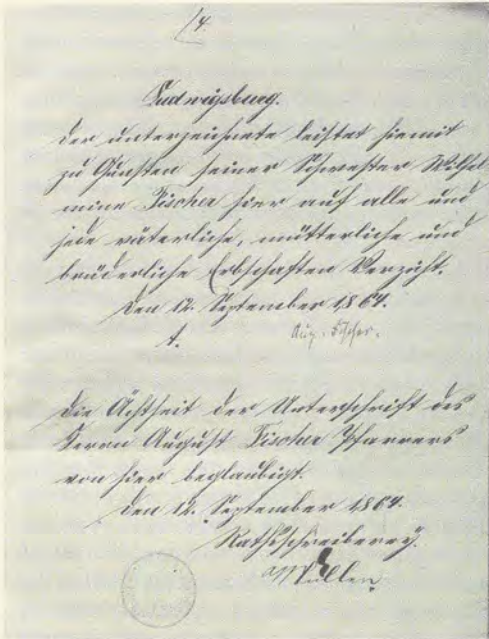 14.
Ludwigsburg.
Der unterzeichnete leistet hiemit
zu Gunsten seiner Schwester Wilhel-
mine Fischer hier auf alle und
jede väterliche, mütterliche und
brüderliche Erbschaften Verzicht.
Den 12. September 1864.
t. Aug. Fischer.
Die Ächtheit der Unterschrift des
Herrn August Fischer Pfarrers
von hier beglaubigt.
Den 12. September 1864.
Rathsschreiberey.